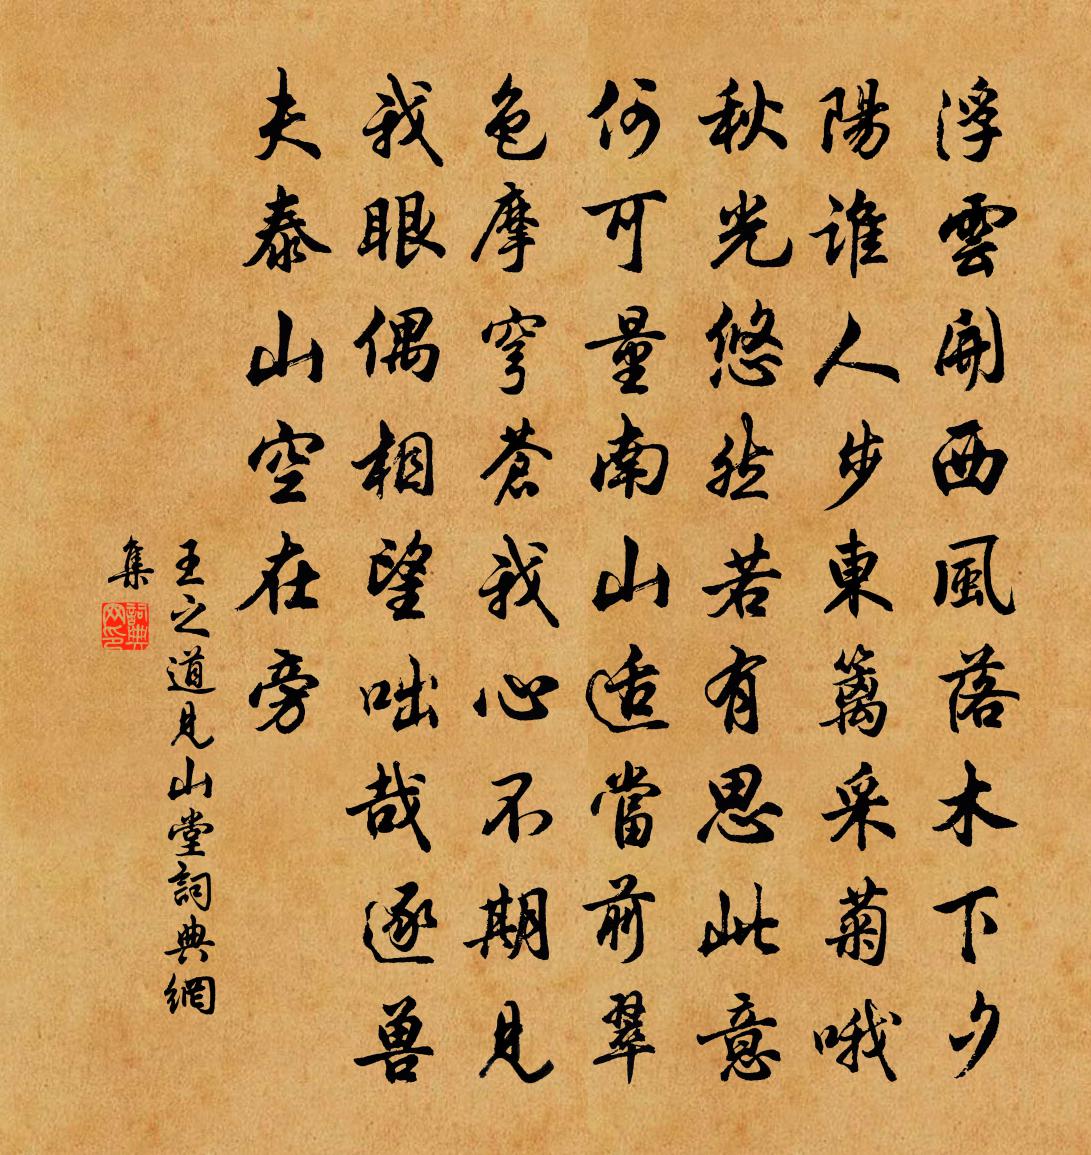 浮雲開西風落木下夕
陽誰人步東籬采菊哦
秋光悠然若有思此意
何可量南山适當前翠
色摩穹蒼我心不期見
我眼偶相望咄哉逐兽
夫泰山空在旁
王之道見山堂詞典網
集
詞典
网印